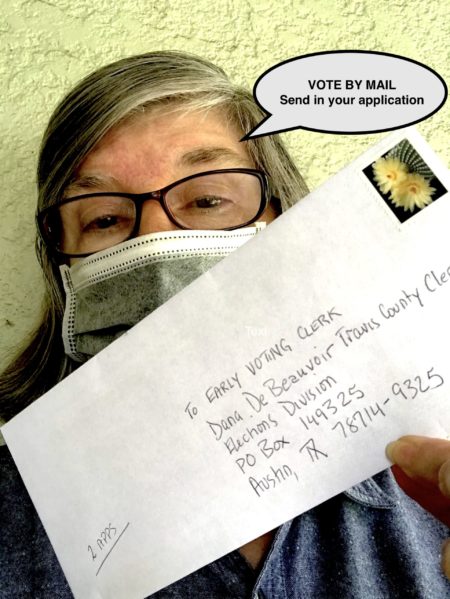 VOTE BY MAIL
Send in your application
TO EARLY VOTING CLERK
Dana De Beauvoir Travis County Cler
Elections Division
PO Box 149325
Austin, TX 78714-9325
2 APPS
Text